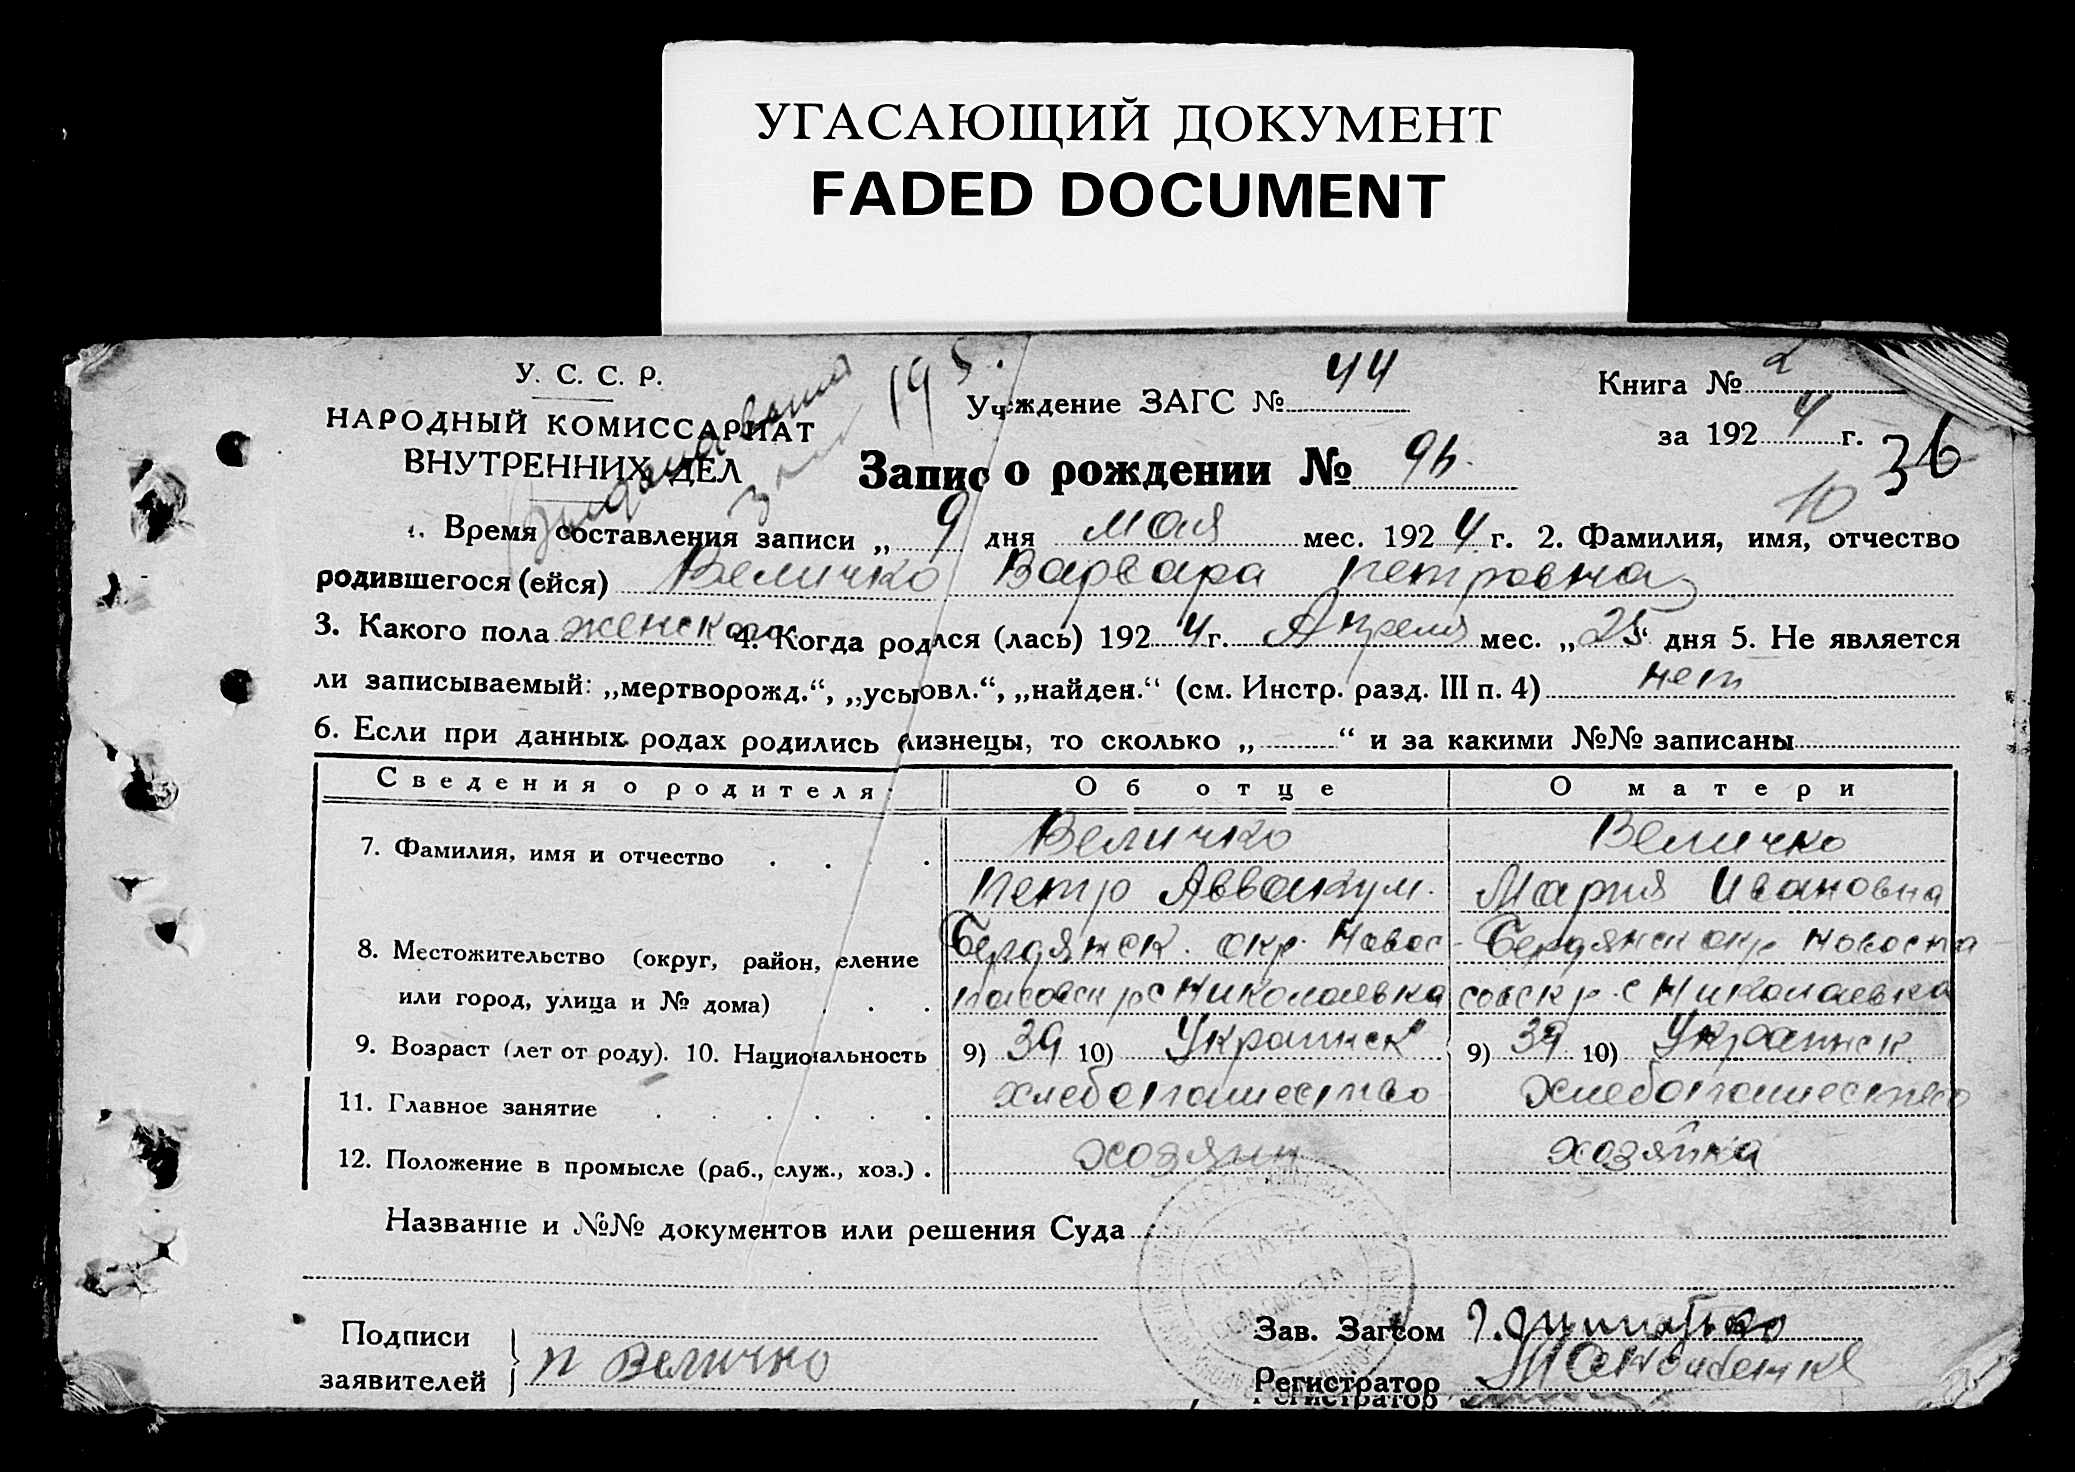 УГАСАЮЩИЙ ДОКУМЕНТ
FADED DOCUMENT
У. С. С. Р.
НАРОДНЫЙ КОМИССАРИАТ
ВНУТРЕННИХ ДЕЛ
195
Учреждение ЗАГС № 44
Книга № 2
за 1924 г.
36
Запис о рождении № 96.
10
1. Время составления записи „ 9 дня мая мес. 1924 г. 2. Фамилия, имя, отчество
родившегося (ейся) Величко Варвара Петровна
3. Какого пола женского 4. Когда родлся (лась) 1924 г. Апреля мес. „ 25 “ дня 5. Не является
ли записываемый: „мертворожд.“, „усыовл.“, „найден.“ (см. Инстр. разд. III п. 4) нет
6. Если при данных родах родились близнецы, то сколько „ “ и за какими №№ записаны
Сведения о родителях Об отце О матери
7. Фамилия, имя и отчество Величко Величко
Петр Аввакум. Мария Ивановна
8. Местожительство (округ, район, еление Бердянск. окр. Новос- Бердянск окр Новоспа
или город, улица и № дома) пасовск р с Николаевка совск р. с Николаевка
9. Возраст (лет от роду). 10. Национальность 9) 39 10) Украинск 9) 39 10) Украинск.
11. Главное занятие хлебопашество Хлебопашество
12. Положение в промысле (раб., служ., хоз.) . хозяин хозяйка
Название и №№ документов или решения Суда
Подписи
заявителей П Величко
Зав. Загсом
Регистратор
Регистратор